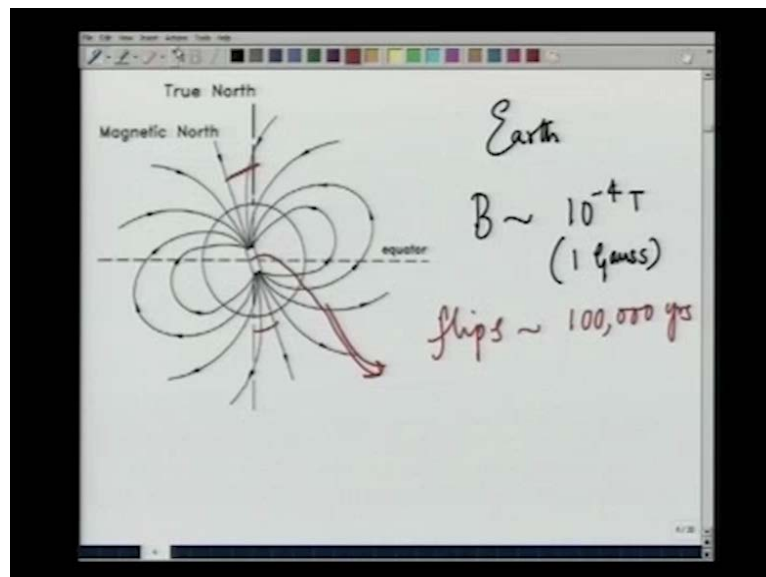 File Edit View Insert Actions Tools Help
True North
Magnetic North
equator
Earth
B ~ 10⁻⁴ T
(1 Gauss)
flips ~ 100,000 yrs